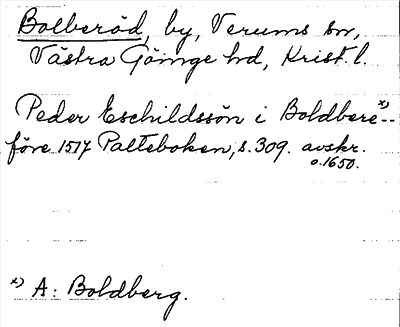 Bolberöd, by, Verums sn,
Västra Göinge hd, Krist. l.
Peder Eschildssön i Boldbere x)--
före 1517 Palteboken, s. 309. avskr.
o. 1650.
x) A: Boldberg.